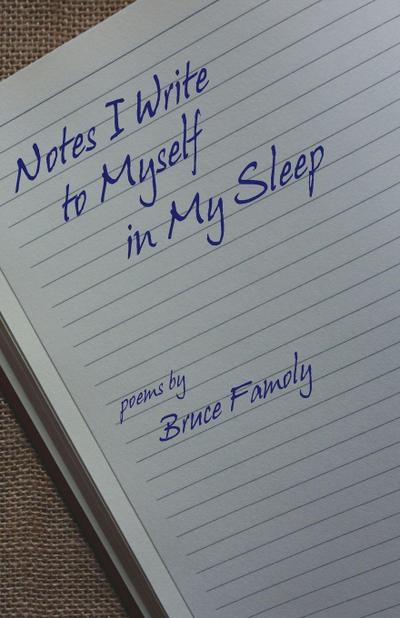 Notes I Write
to Myself
in My Sleep
poems by
Bruce Famoly